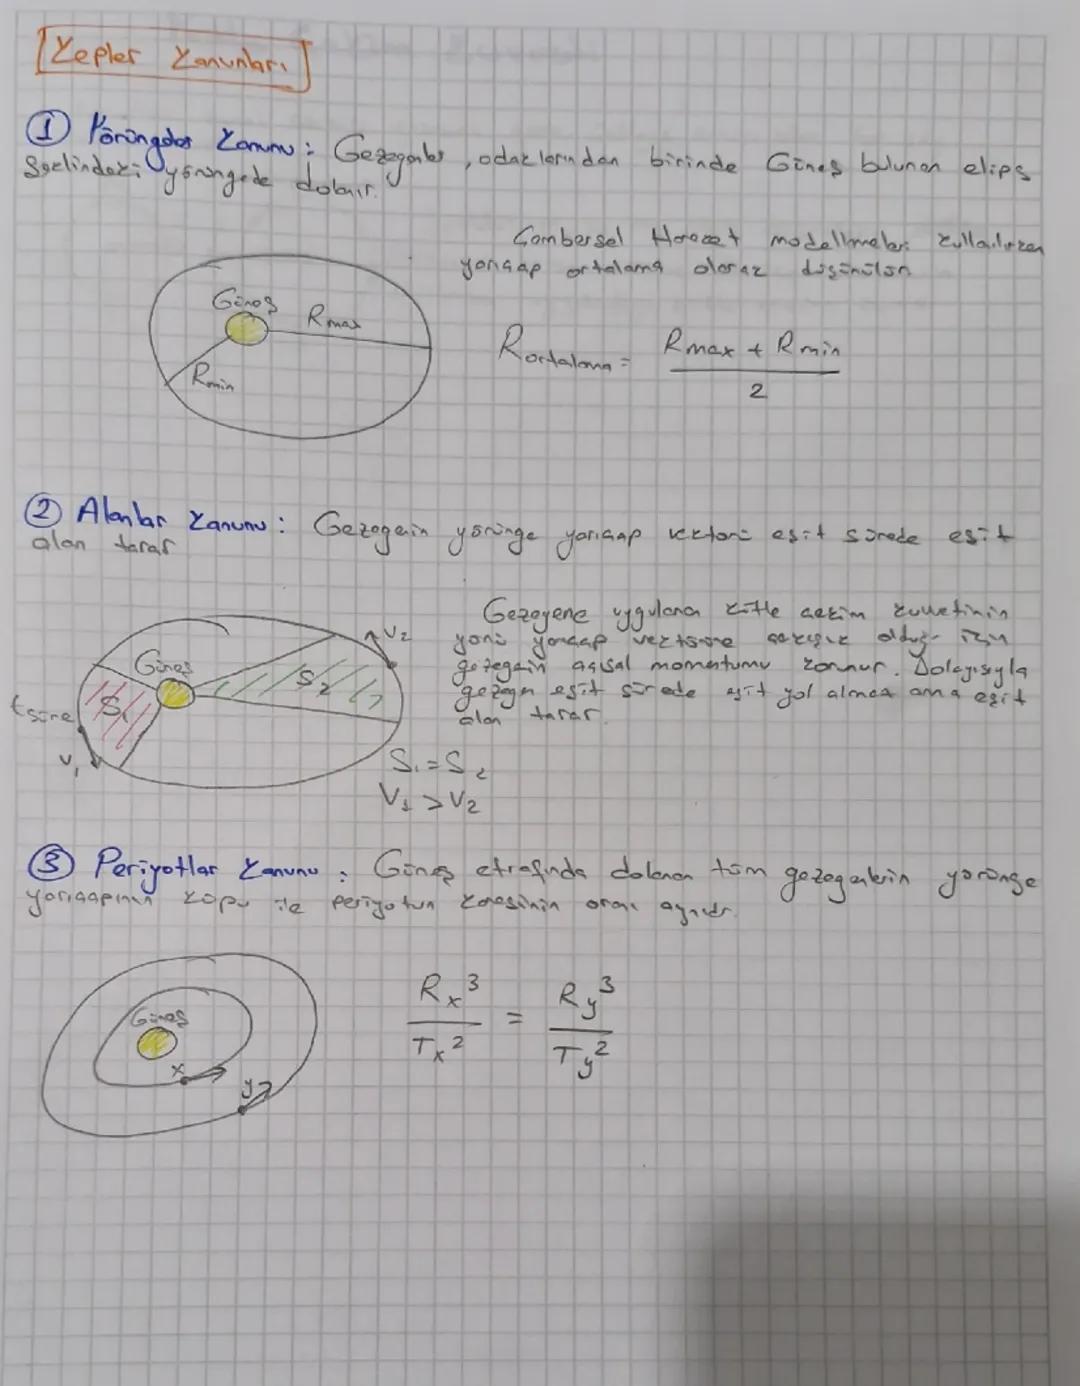 Kepler Kanunları
① Yörüngeler Kanunu : Gezegenler , odaklarından birinde Güneş bulunan elips
şeklindeki yörüngede dolanır.
Çembersel Hareket modellmeleri kullanılırken
yarıçap ortalama olarak düşünülür
Güneş
Rmax
Rmin
Rortalama = Rmax + Rmin / 2
② Alanlar Kanunu : Gezegenin yörünge yarıçap vektörü eşit sürede eşit
alan tarar
Gezegene uygulanan kütle çekim kuvvetinin
yönü yarıçap vektörüne çakışık olduğu için
gezegenin açısal momentumu korunur. Dolayısıyla
gezegen eşit sürede eşit yol almaz ama eşit
alan tarar.
Güneş
V2
S1
S2
t süre
V1
S1 = S2
V1 > V2
③ Periyotlar Kanunu : Güneş etrafında dolanan tüm gezegenlerin yörünge
yarıçapının küpü ile periyotun karesinin oranı aynıdır.
Güneş
x
y
Rx³ / Tx² = Ry³ / Ty²